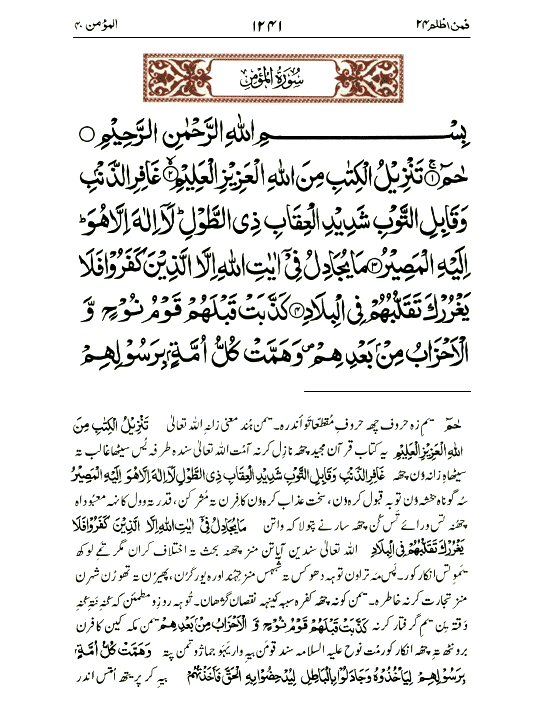 فمن اظلم ۲۴ ۱۲۴۱ المؤمن ۴۰
سُوْرَةُ الْمُؤْمِنْ
بِسْمِ اللهِ الرَّحْمٰنِ الرَّحِيْمِ ○
حٰمٓ ۚ﴿۱﴾ تَنْزِيْلُ الْكِتٰبِ مِنَ اللهِ الْعَزِيْزِ الْعَلِيْمِ ﴿۲﴾ غَافِرِ الذَّنْۢبِ
وَقَابِلِ التَّوْبِ شَدِيْدِ الْعِقَابِ ذِى الطَّوْلِ ؕ لَآ اِلٰهَ اِلَّا هُوَ ؕ
اِلَيْهِ الْمَصِيْرُ ﴿۳﴾ مَا يُجَادِلُ فِىْٓ اٰيٰتِ اللهِ اِلَّا الَّذِيْنَ كَفَرُوْا فَلَا
يَغْرُرْكَ تَقَلُّبُهُمْ فِى الْبِلَادِ ﴿۴﴾ كَذَّبَتْ قَبْلَهُمْ قَوْمُ نُوْحٍ وَّ
الْاَحْزَابُ مِنْۢ بَعْدِهِمْ ۪ وَهَمَّتْ كُلُّ اُمَّةٍۭ بِرَسُوْلِهِمْ
حٰمٓ یِم زہ حروف چھہ حروفِ مُقطّعاتَو أندرہ۔ یمن ہُند معنی زانہِ اللہ تعالیٰ تَنْزِيْلُ الْكِتٰبِ مِنَ
اللهِ الْعَزِيْزِ الْعَلِيْمِ یہ کتاب قرآن مجید چھہ نازِل کرنہ آمُت اللہ تعالیٰ سندہ طرفہ یُس سیٹھا غالب تہ
سیٹھاہ زانہ وُن چھہ غَافِرِ الذَّنْۢبِ وَقَابِلِ التَّوْبِ شَدِيْدِ الْعِقَابِ ذِى الطَّوْلِ لَآ اِلٰهَ اِلَّا هُوَ اِلَيْهِ الْمَصِيْرُ
سُہ گوناہ بخشہ وُن توبہ قبول کرہ وُن، سخت عذاب کرہ وُن کافرن تہ مُشرکن، قدرتہ وول کانہہ معبوداہ
چھنہ تس ورائے تَس کُن چھہ سارنے پتو لاکہ واتن مَا يُجَادِلُ فِىْٓ اٰيٰتِ اللهِ اِلَّا الَّذِيْنَ كَفَرُوْا فَلَا
يَغْرُرْكَ تَقَلُّبُهُمْ فِى الْبِلَادِ اللہ تعالیٰ سندین آیاتن منز چھنہ بحث تہ اختلاف کران مگر تمے لوکھ
یموتس انکار کور۔ پس مَہ تراون توہہ دھوکس تہ شُبہس منز تہند اورہ یور گژُن، پھیرُن تہ تھورُن شہرن
منز تجارت کرنہ خاطرہ۔ یمن کونہ چھہ کفرہ سببہ کینہہ نقصان گژھان۔ توہہ روزِو مطمئن کہ عنہ عنہ
وقتہ ین یم گرفتار کرنہ كَذَّبَتْ قَبْلَهُمْ قَوْمُ نُوْحٍ وَّ الْاَحْزَابُ مِنْۢ بَعْدِهِمْ یمن مکہ کین کافرن
برونٹھ تہ چھہ انکار کورمُت نوح علیہ السلامہ سند قومن بیہ واریہو جماژو تمن پتہ وَهَمَّتْ كُلُّ اُمَّةٍۭ
بِرَسُوْلِهِمْ لِيَاْخُذُوْهُ وَجَادَلُوْا بِالْبَاطِلِ لِيُدْحِضُوْا بِهِ الْحَقَّ فَاَخَذْتُهُمْ بیہ کر پریتھ اُمتَس اندر